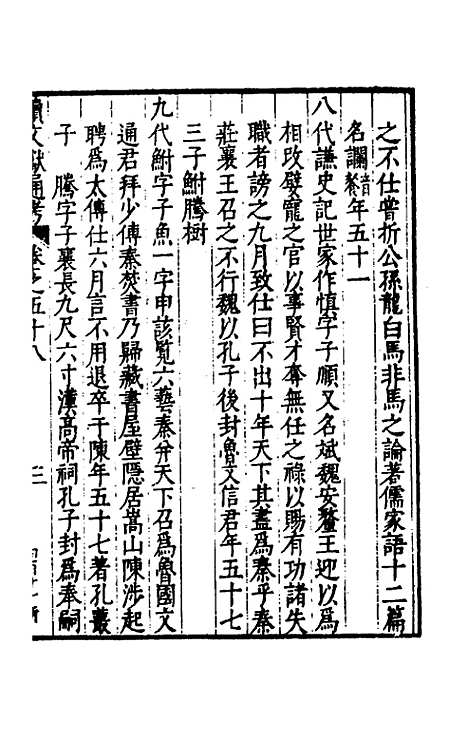 之不仕嘗析公孫龍白馬非馬之論著儒家語十二篇
名讕言年五十一
八代謙史記世家作慎字子順又名斌魏安釐王迎以為
相改嬖寵之官以事賢才奪無任之祿以賜有功諸失
職者謗之九月致仕曰不出十年天下其盡為秦乎秦
莊襄王召之不行魏以孔子後封魯文信君年五十七
三子鮒騰樹
九代鮒字子魚一字申該覧六藝秦并天下召為魯國文
通君拜少傅秦焚書乃歸藏書屋壁隱居嵩山陳涉起
聘為太傅仕六月言不用退卒于陳年五十七著孔叢
子　騰字子襄長九尺六寸漢高帝祠孔子封為奉嗣
續文獻通考 卷之五十八 三